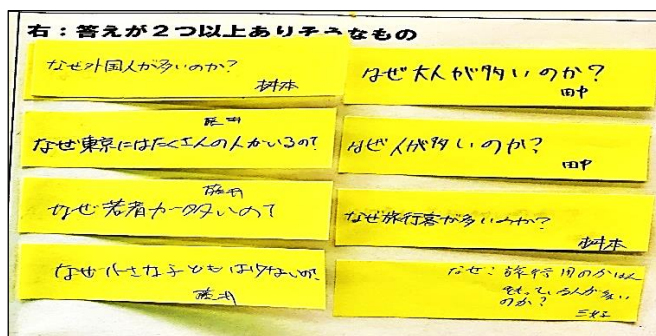 右：答えが２つ以上ありそうなもの
なぜ外国人が多いのか?
桝本
なぜ東京にはたくさんの人がいるの?
なぜ若者が多いの?
なぜ小さな子どもは少ないの?
なぜ大人が多いのか?
田中
なぜ人が多いのか?
田中
なぜ旅行客が多いのか?
桝本
なぜ、旅行用のかばん
をもっている人が多い
のか?
三好